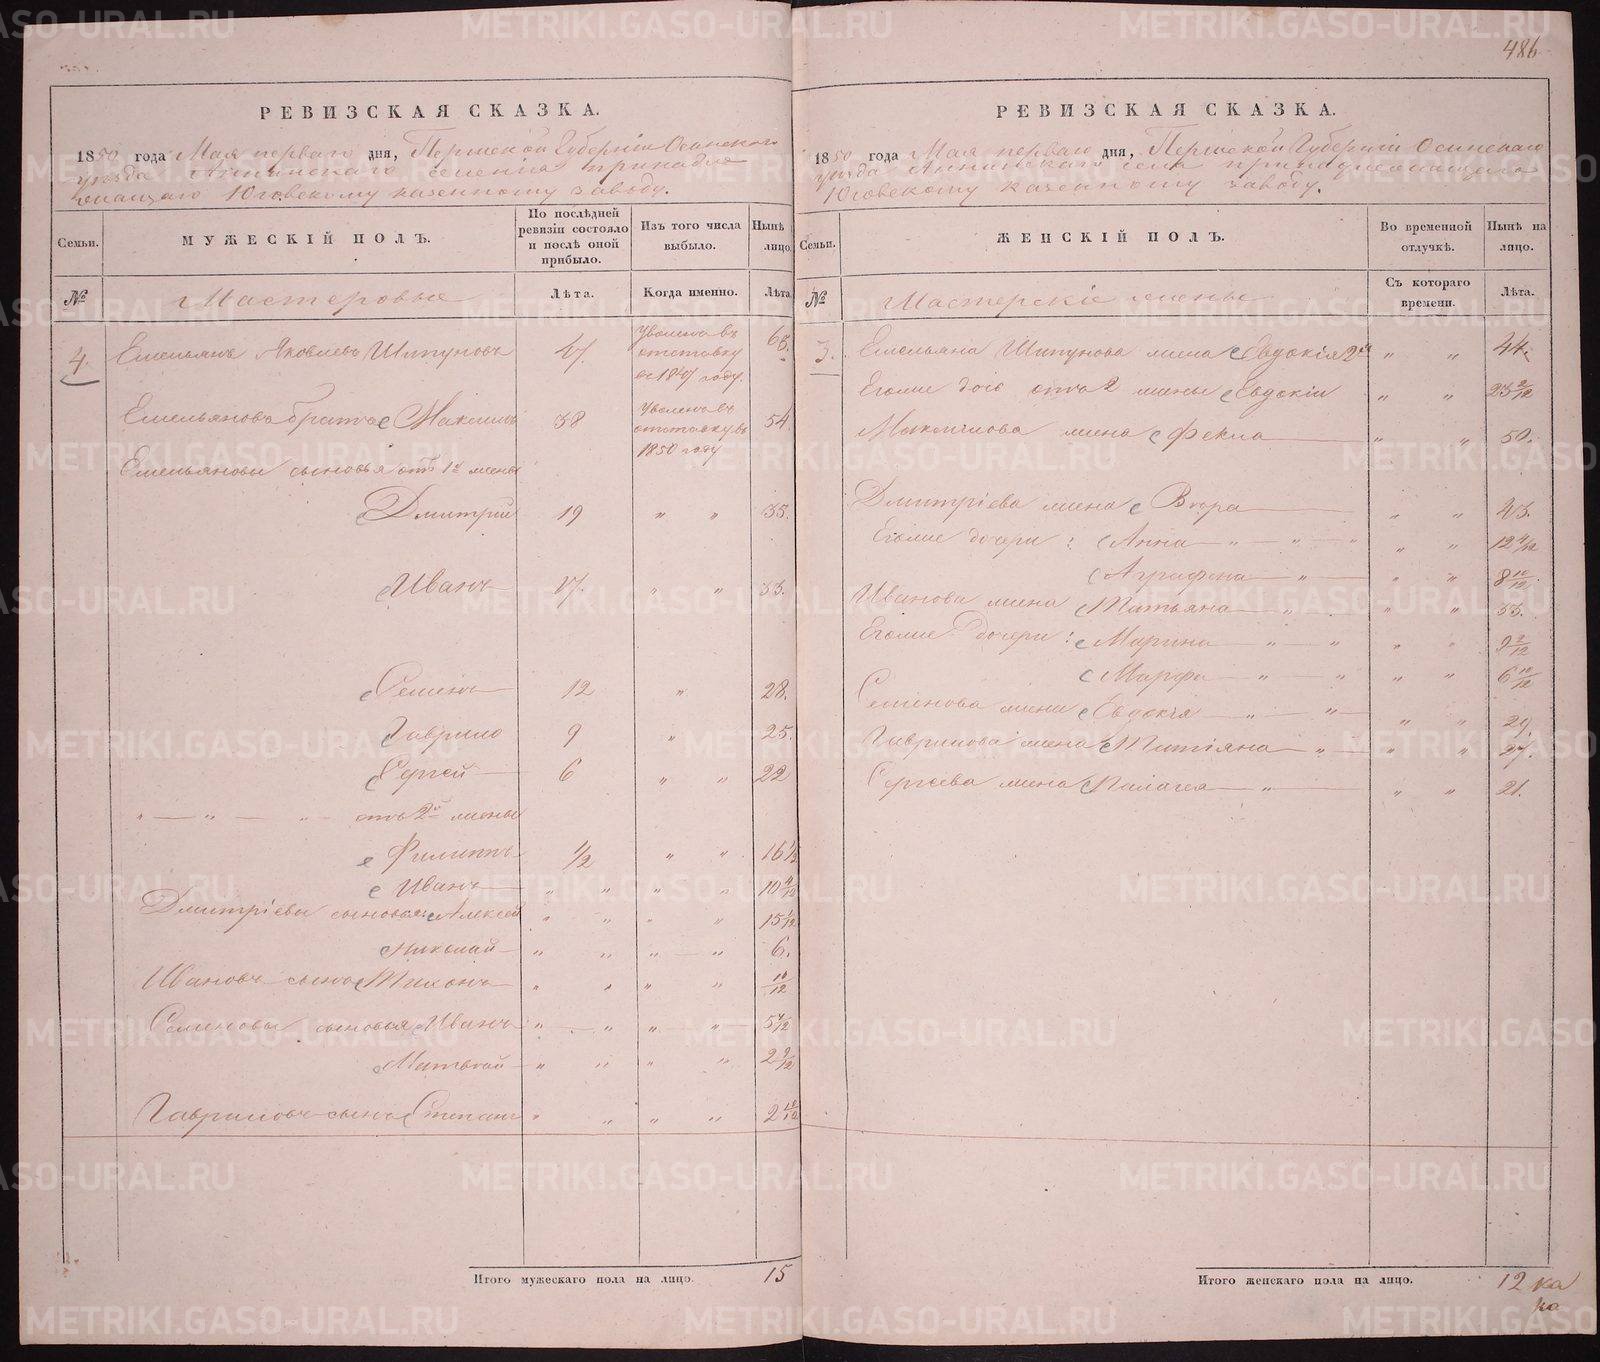 486
РЕВИЗСКАЯ СКАЗКА.
1850 года Мая перваго дня, Пермской Губерніи Осинскаго
уѣзда Аннинскаго селенія принадле
жащаго Юговскому казенному заводу.
Семьи.
МУЖЕСКІЙ ПОЛЪ.
По послѣдней ревизіи состояло и послѣ оной прибыло.
Изъ того числа выбыло.
Нынѣ лицо.
№
Мастеровые
Лѣта.
Когда именно.
Лѣта
4.
Емельянъ Яковлевъ Шипуновъ 47. уволенъ въ отставку въ 1847 году. 63.
Емельяновъ братъ Максимъ 38 уволенъ въ отставку въ 1850 году 54.
Емельяновы сыновья отъ 1й жены
Дмитрий 19 " " 35.
Иванъ 17. " " 33.
Семенъ 12 " 28.
Гаврило 9 " 25.
Сергей 6 " " 22
" — " — " отъ 2й жены
Филиппъ 1/2 " " 16 1/2
Иванъ " " " " 10 4/12
Дмитріевы сыновья: Алексей " " " " 15 1/12
Николай " " " " 6.
Ивановъ сынъ Тихонъ " " " " 10/12
Семеновы сыновья Иванъ " " " " 5 4/12
Матвей " " " " 2 9/12
Гавриловъ сынъ Степанъ " " " " 2 10/12
Итого мужескаго пола на лицо. 15
РЕВИЗСКАЯ СКАЗКА.
1850 года Мая перваго дня, Пермской Губерніи Осинскаго
уѣзда Аннинскаго села принадлежащаго
Юговскому казенному заводу.
Семьи.
ЖЕНСКІЙ ПОЛЪ.
Во временной отлучкѣ.
Нынѣ на лицо.
№
Мастерскіе жены
Съ котораго времени.
Лѣта.
3.
Емельяна Шипунова жена Евдокія 2я " " 44.
Егоже дочь отъ 2 жены Евдокіи " " 23 2/12
Максимова жена Фекла " " 50.
Дмитріева жена Вѣра " " 43.
Егоже дочери: Анна " " 12 4/12
Аграфена " " 8 10/12
Иванова жена Татьяна " " 33.
Егоже дочери: Марина " " 9 2/12
Марфа " " 6 10/12
Семенова жена Евдокія " " 29.
Гаврилова жена Татіяна " " 27.
Сергѣева жена Палагея " " 21.
Итого женскаго пола на лицо. 12
METRIKI.GASO-URAL.RU